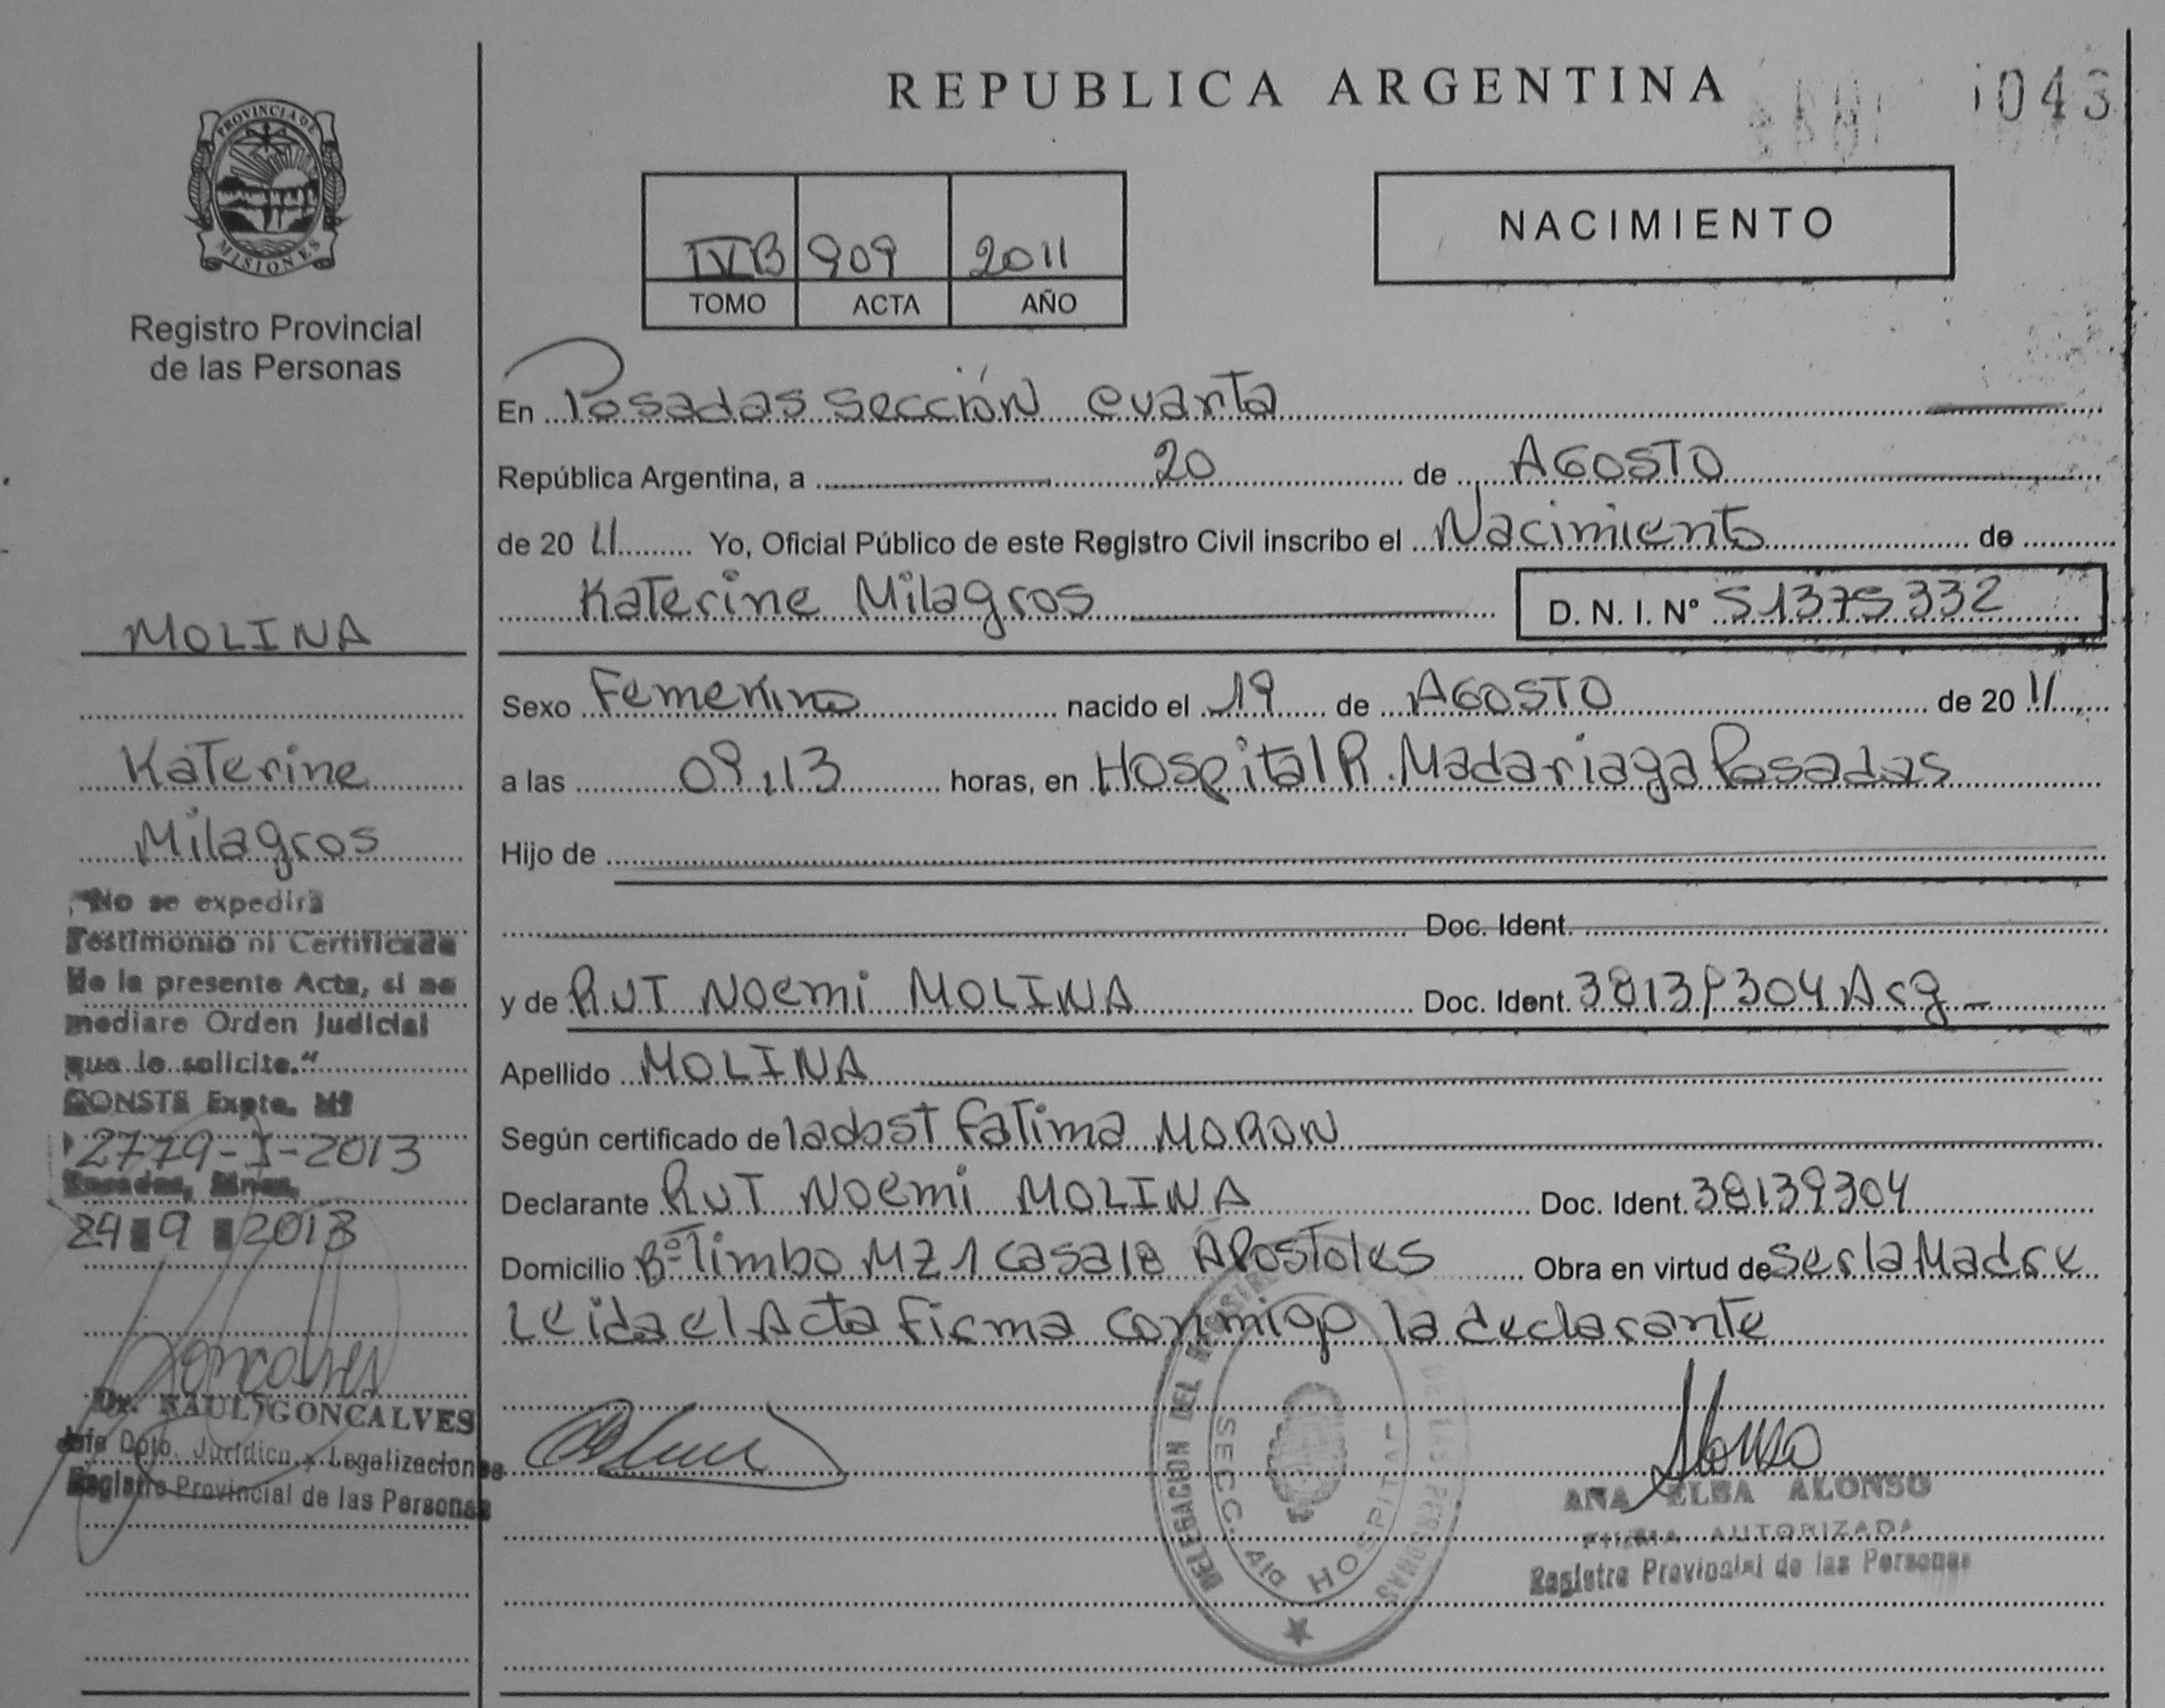 REPUBLICA ARGENTINA
1043
PROVINCIA DE
MISIONES
Registro Provincial
de las Personas
IVB 909 2011
TOMO ACTA AÑO
NACIMIENTO
En Posadas Sección cuarta
República Argentina, a 20 de AGOSTO
de 20 11 Yo, Oficial Público de este Registro Civil inscribo el Nacimiento de
Katerine Milagros D. N. I. Nº 51375332
Sexo Femenino nacido el 19 de AGOSTO de 20 11
a las 09,13 horas, en Hospital R. Madariaga Posadas
Hijo de
Doc. Ident.
y de RUT NOEMI MOLINA Doc. Ident. 38139304 Arg
Apellido MOLINA
Según certificado de la obst Fatima MORON
Declarante RUT NOEMI MOLINA Doc. Ident. 38139304
Domicilio Bº Timbo MZ 1 casa 18 APostoles Obra en virtud de Ser la Madre
Leida el Acta Firma conmigo la declarante
MOLINA
Katerine
Milagros
"No se expedirá
Testimonio ni Certificado
de la presente Acta, si no
mediare Orden Judicial
que lo solicite."
CONSTE Expte. Nº
2779-I-2013
Posadas, Mnes.
24 9 2013
Dr. RAUL GONCALVES
Jefe Dpto. Jurídico y Legalizaciones
Registro Provincial de las Personas
DELEGACION DEL REGISTRO DE LAS PERSONAS
SECC. 4ta HOSPITAL
ANA ELBA ALONSO
FIRMA AUTORIZADA
Registro Provincial de las Personas